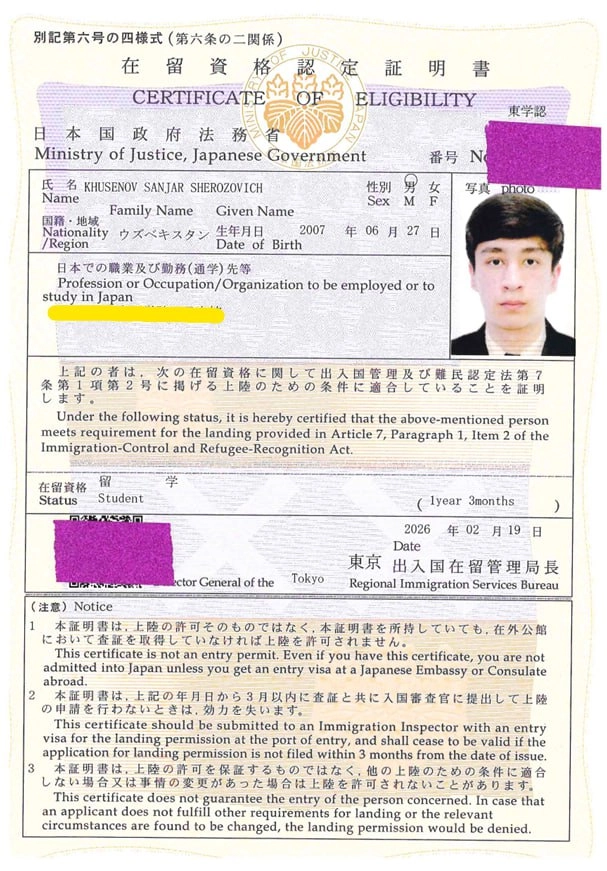 別記第六号の四様式(第六条の二関係)
在留資格認定証明書
CERTIFICATE OF ELIGIBILITY
MINISTRY OF JUSTICE JAPAN
東学認
日本国政府法務省
Ministry of Justice, Japanese Government
番号 No
氏名 KHUSENOV SANJAR SHEROZOVICH
Name
Family Name Given Name
性別 男 女
Sex M F
写真 photo
国籍・地域
Nationality ウズベキスタン
/Region
生年月日 2007 年 06 月 27 日
Date of Birth
日本での職業及び勤務(通学)先等
Profession or Occupation/Organization to be employed or to
study in Japan
上記の者は、次の在留資格に関して出入国管理及び難民認定法第7
条第1項第2号に掲げる上陸のための条件に適合していることを証明
します。
Under the following status, it is hereby certified that the above-mentioned person
meets requirement for the landing provided in Article 7, Paragraph 1, Item 2 of the
Immigration-Control and Refugee-Recognition Act.
在留資格 留 学
Status Student
( 1year 3months )
2026 年 02 月 19 日
Date
東京 出入国在留管理局長
ector General of the Tokyo Regional Immigration Services Bureau
(注意) Notice
1 本証明書は、上陸の許可そのものではなく、本証明書を所持していても、在外公館
において査証を取得していなければ上陸を許可されません。
This certificate is not an entry permit. Even if you have this certificate, you are not
admitted into Japan unless you get an entry visa at a Japanese Embassy or Consulate
abroad.
2 本証明書は、上記の年月日から3月以内に査証と共に入国審査官に提出して上陸
の申請を行わないときは、効力を失います。
This certificate should be submitted to an Immigration Inspector with an entry
visa for the landing permission at the port of entry, and shall cease to be valid if the
application for landing permission is not filed within 3 months from the date of issue.
3 本証明書は、上陸の許可を保証するものではなく、他の上陸のための条件に適合
しない場合又は事情の変更があった場合は上陸を許可されないことがあります。
This certificate does not guarantee the entry of the person concerned. In case that
an applicant does not fulfill other requirements for landing or the relevant
circumstances are found to be changed, the landing permission would be denied.